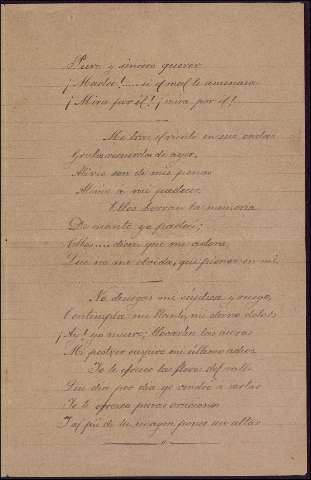 Puro y sincero querer
¡Madre!.... si el mal le amenaza
¡Mira por él! ¡mira por él!
Me trae el viento en sus ondas
Gratos recuerdos de ayer,
Alivio son de mis penas
Alivio á mi padecer.
Ellos borran la memoria
De cuanto yo padecí;
Ellos.... dicen que me adora,
Que no me olvida, que piensa en mí.
No deniegas mi súplica y ruego,
Contempla mi llanto, mi eterno dolor
¡Ay! yo muero; llevarán las auras
Mi postrer suspiro mi último adios
Yo te ofrezco las flores del valle
Que dia por dia yo vendré á
Yo te ofrezco puras oraciones
Y al pié de tu imagen poner un altar